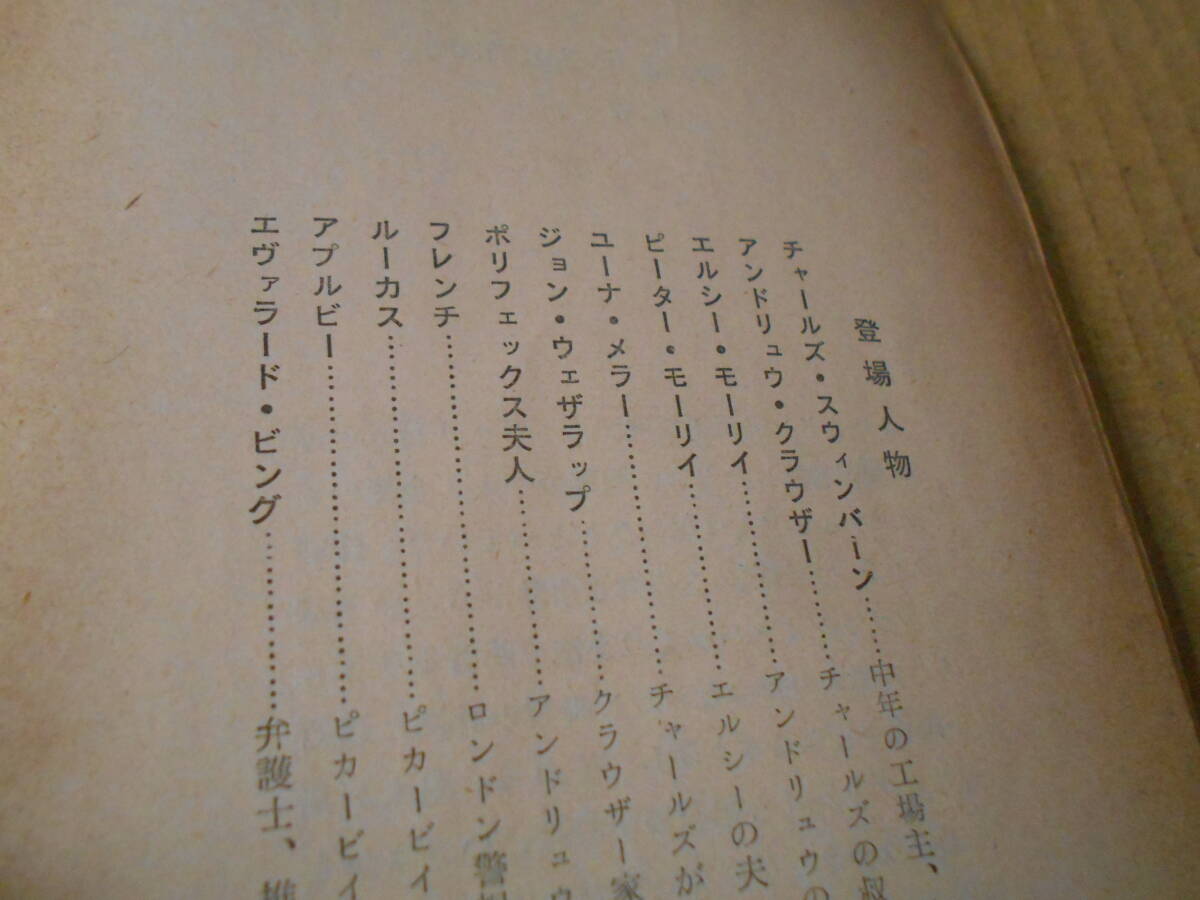 登場人物
チャールズ・スウィンバーン……中年の工場主、
アンドリュウ・クラウザー………チャールズの叔
エルシー・モーリイ………………アンドリュウの
ピーター・モーリイ………………エルシーの夫
ユーナ・メラー……………………チャールズが
ジョン・ウェザラップ……………クラウザー家
ポリフェックス夫人………………アンドリュウ
フレンチ……………………………ロンドン警
ルーカス……………………………ピカービイ
アプルビー…………………………ピカービイ
エヴァラード・ビング……………弁護士、推